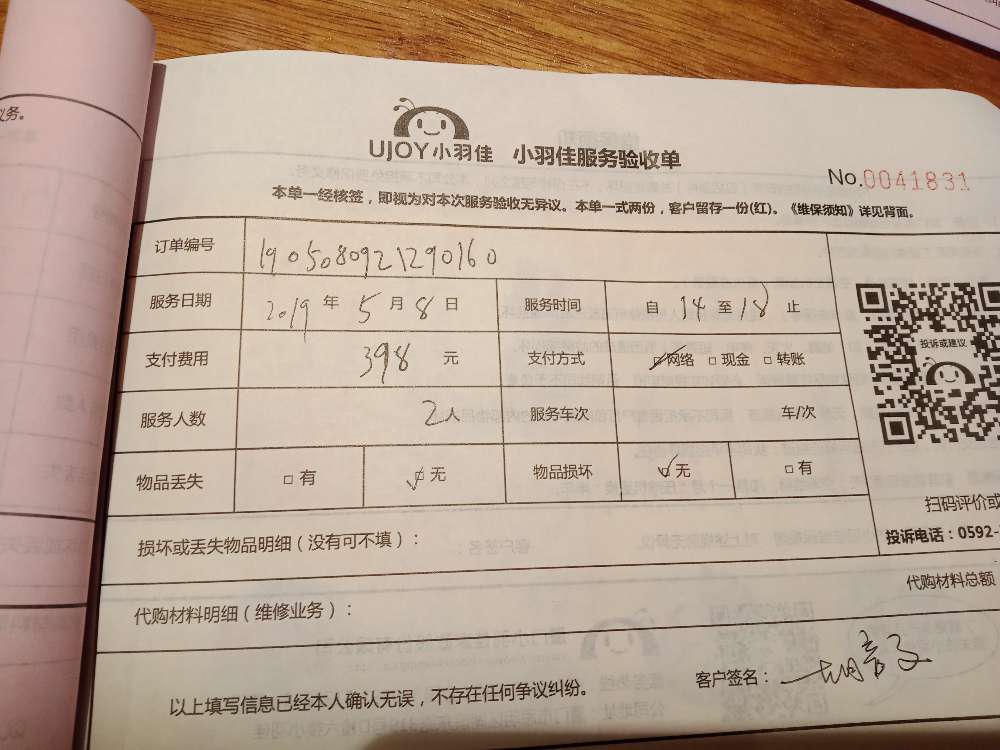 义务。
UJOY小羽佳 小羽佳服务验收单
No.0041831
本单一经核签，即视为对本次服务验收无异议。本单一式两份，客户留存一份(红)。《维保须知》详见背面。
订单编号 1905080921290160
服务日期 2019 年 5 月 8 日 服务时间 自 14 至 18 止
支付费用 398 元 支付方式 ☑网络 □现金 □转账
投诉或建议
服务人数 2 服务车次 车/次
物品丢失 □有 ☑无 物品损坏 ☑无 □有
扫码评价或
投诉电话：0592-
损坏或丢失物品明细（没有可不填）：
代购材料总额
代购材料明细（维修业务）：
以上填写信息已经本人确认无误，不存在任何争议纠纷。
客户签名：